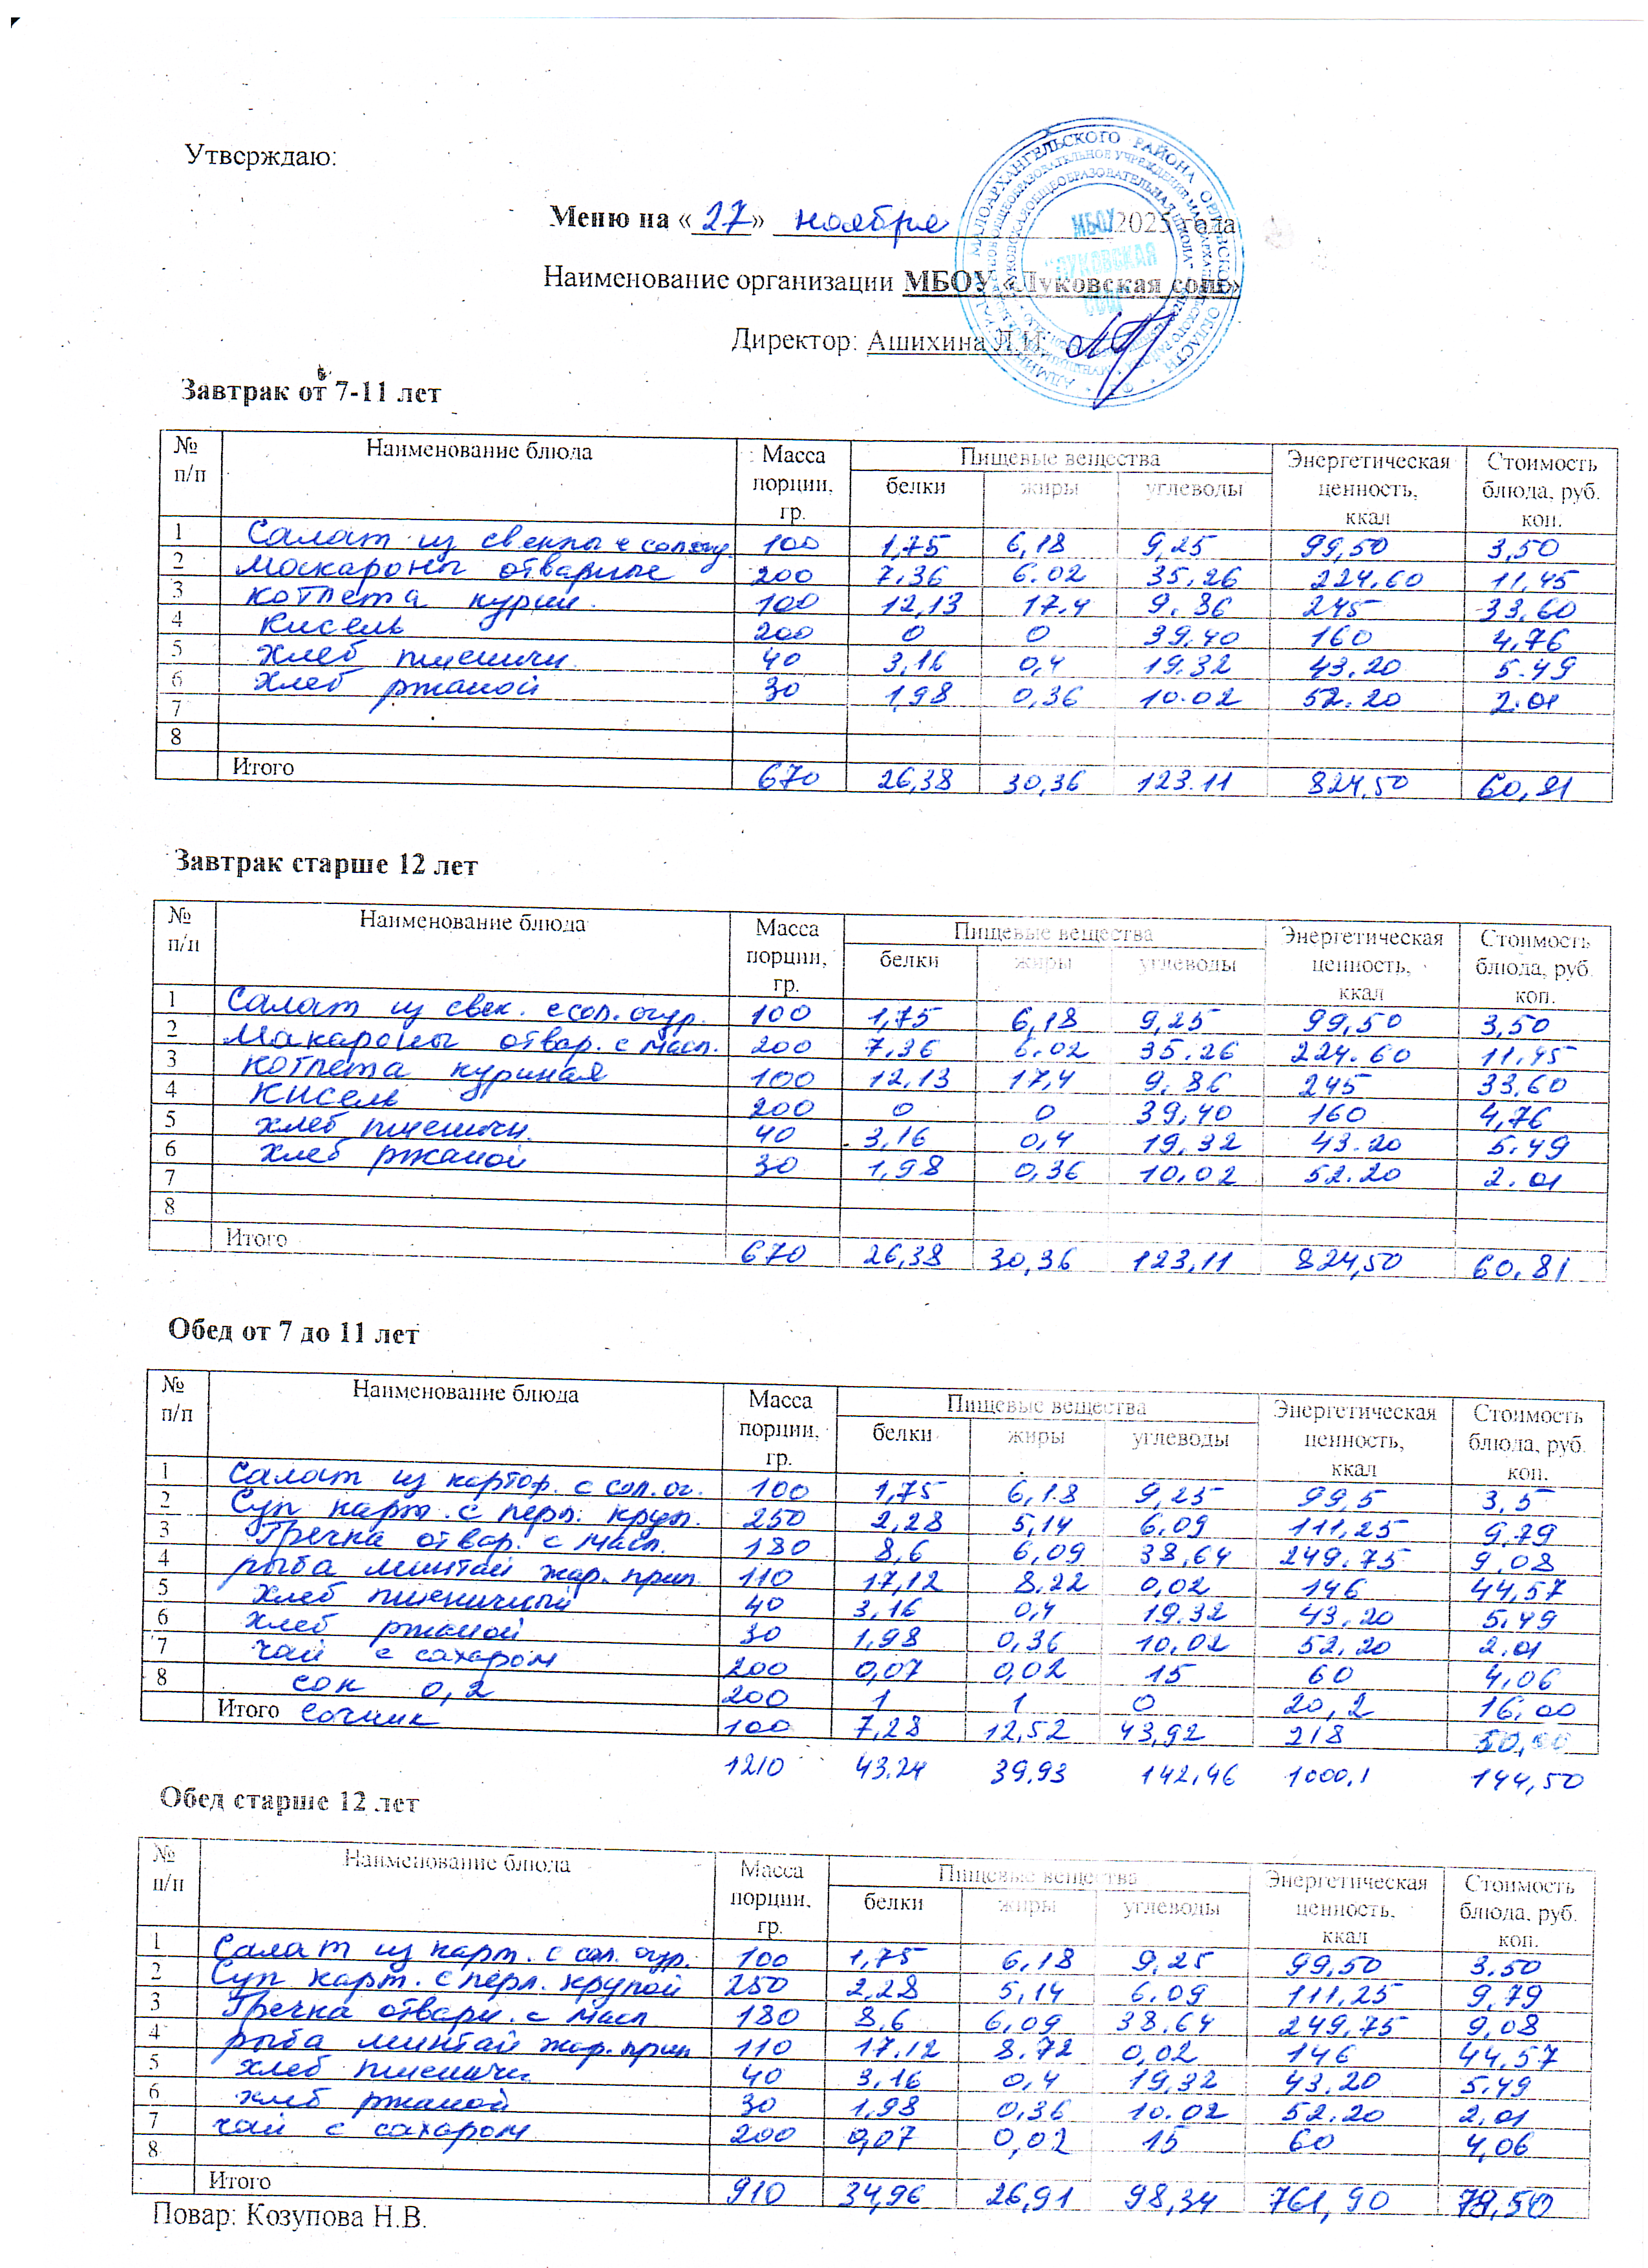 Утверждаю:
Меню на «27» ноября 2025 года
Наименование организации МБОУ «Луковская сош»
Директор: Ашихина Л.И.
Завтрак от 7-11 лет
№ п/п Наименование блюда Масса порции, гр. Пищевые вещества белки жиры углеводы Энергетическая ценность, ккал Стоимость блюда, руб. коп.
1 Салат из свеклы с сол.огур. 100 1,75 6,18 9,25 99,50 3,50
2 Макароны отварные 200 7,36 6.02 35,26 224,60 11,45
3 котлета курин. 100 12,13 17.4 9.86 245 33,60
4 Кисель 200 0 0 39,40 160 4,76
5 хлеб пшеничн 40 3,16 0,4 19,32 43.20 5.49
6 хлеб ржаной 30 1,98 0,36 10.02 52.20 2.01
7
8
Итого 670 26,38 30,36 123.11 824,50 60,81
Завтрак старше 12 лет
№ п/п Наименование блюда Масса порции, гр. Пищевые вещества белки жиры углеводы Энергетическая ценность, ккал Стоимость блюда, руб. коп.
1 Салат из свек. с сол.огур. 100 1,75 6,18 9,25 99,50 3,50
2 Макароны отвар. с масл. 200 7,36 6.02 35.26 224.60 11.45
3 котлета куриная 100 12,13 17,4 9.86 245 33,60
4 Кисель 200 0 0 39,40 160 4,76
5 хлеб пшеничн. 40 3,16 0,4 19,32 43.20 5.49
6 хлеб ржаной 30 1,98 0,36 10,02 52.20 2.01
7
8
Итого 670 26,38 30,36 123,11 824,50 60,81
Обед от 7 до 11 лет
№ п/п Наименование блюда Масса порции, гр. Пищевые вещества белки жиры углеводы Энергетическая ценность, ккал Стоимость блюда, руб. коп.
1 Салат из картоф. с сол.ог. 100 1,75 6,18 9,25 99,5 3,5
2 Суп карт. с перл. круп. 250 2,28 5,14 6.09 111,25 9,79
3 Гречка отвар. с масл. 180 8,6 6,09 38,64 249.75 9,08
4 рыба минтай жар. прип. 110 17,12 8.22 0,02 146 44,57
5 хлеб пшеничный 40 3,16 0,4 19.32 43,20 5,49
6 хлеб ржаной 30 1,98 0,36 10,02 52,20 2.01
7 чай с сахаром 200 0,07 0,02 15 60 4,06
8 сок 0,2 200 1 1 0 20,2 16,00
Итого Сочник 100 7,28 12,52 43,92 218 50,00
1210 43.24 39,93 142,46 1000,1 144,50
Обед старше 12 лет
№ п/п Наименование блюда Масса порции, гр. Пищевые вещества белки жиры углеводы Энергетическая ценность, ккал Стоимость блюда, руб. коп.
1 Салат из карт. с сол. огур. 100 1,75 6,18 9,25 99,50 3.50
2 Суп карт. с перл. крупой 250 2,28 5,14 6.09 111,25 9,79
3 Гречка отварн. с масл 180 8,6 6,09 38.64 249,75 9,08
4 рыба минтай жар. прип 110 17.12 8.72 0,02 146 44,57
5 хлеб пшеничн. 40 3,16 0,4 19,32 43,20 5.49
6 хлеб ржаной 30 1,98 0,36 10.02 52.20 2,01
7 чай с сахаром 200 0,07 0,02 15 60 4,06
8
Итого 910 34,96 26,91 98,34 761,90 78,50
Повар: Козупова Н.В.